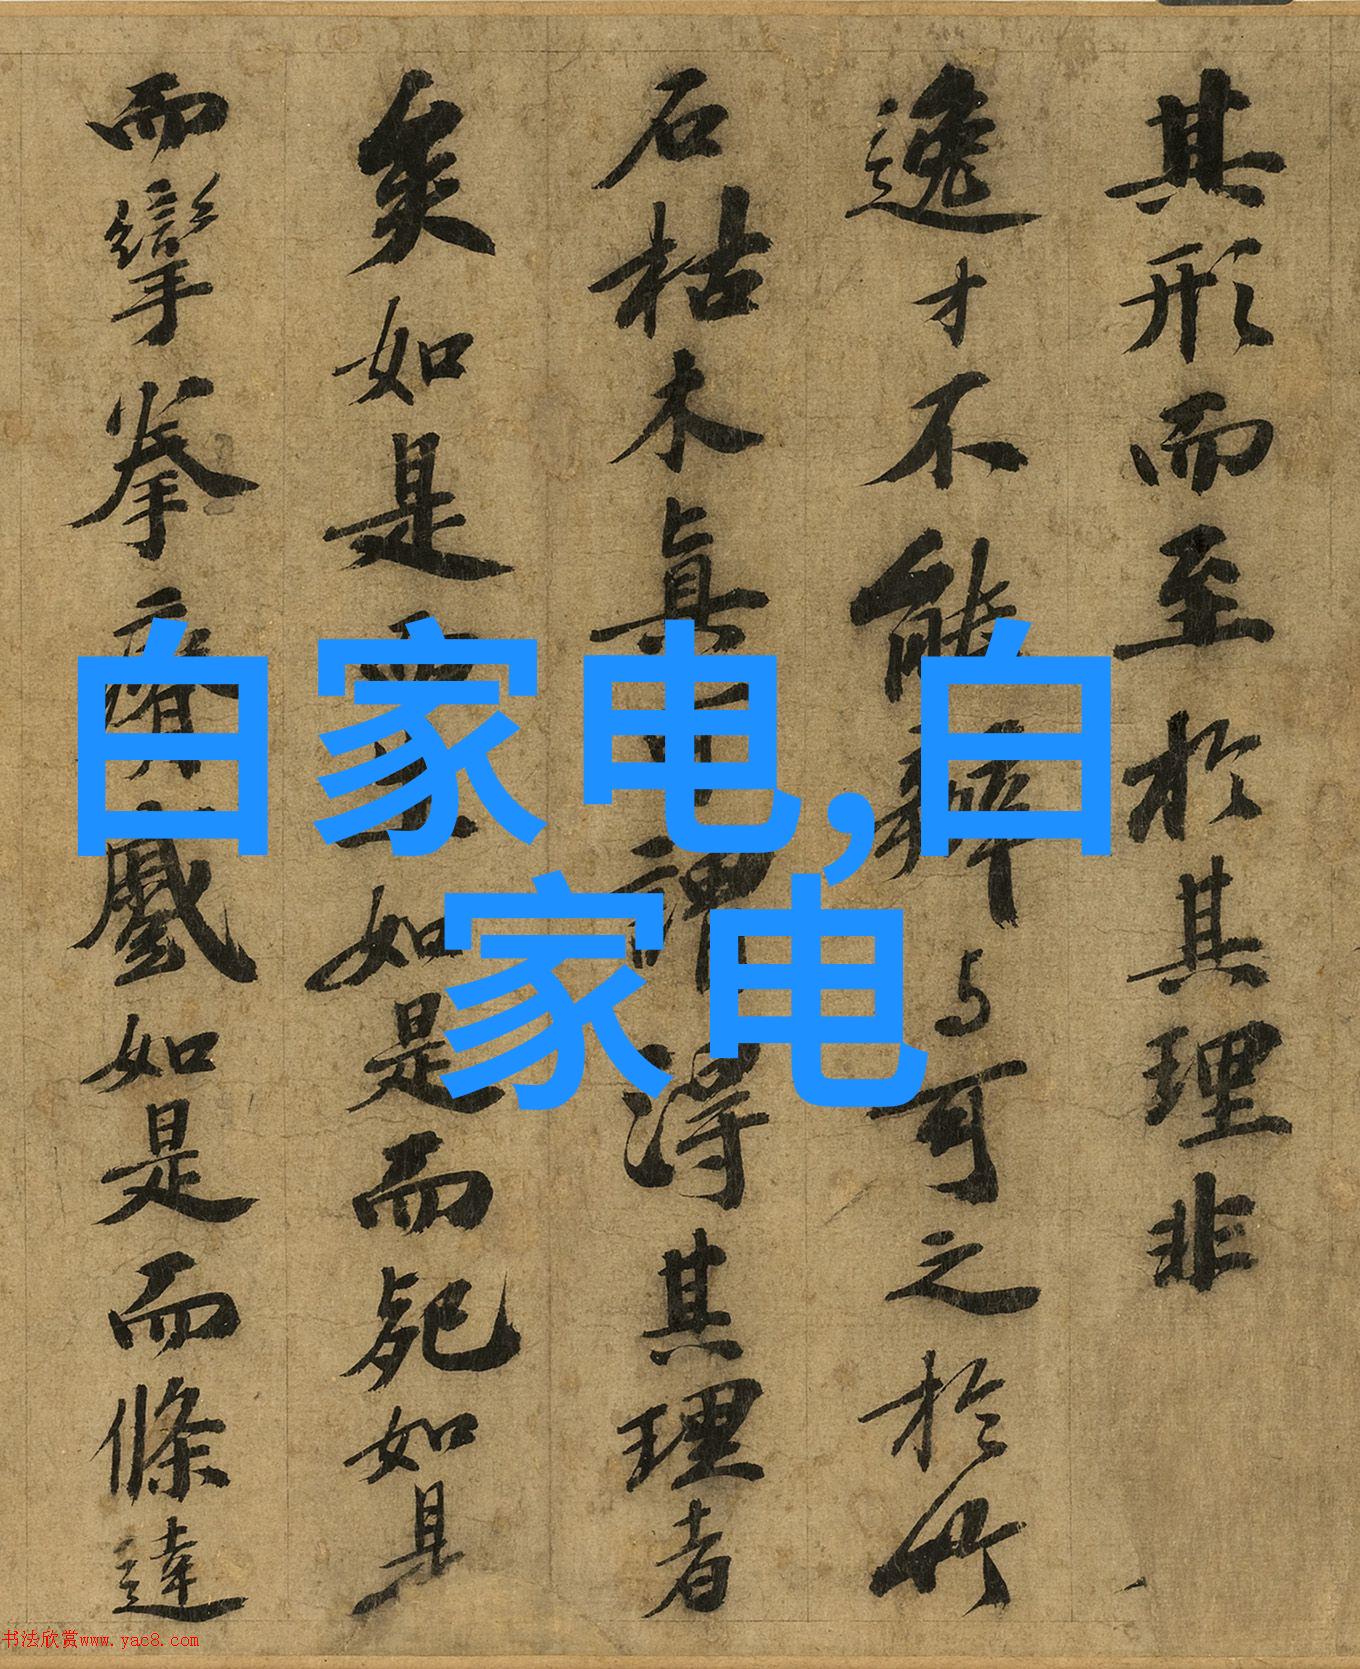 其形而至於其理非
逸才不能辨与可之於竹
石枯木真可謂得其理者
矣如是而生如是而死如是
而攣拳瘠蹙如是而條達
白家电,白
家电
书法欣赏www.yac8.com